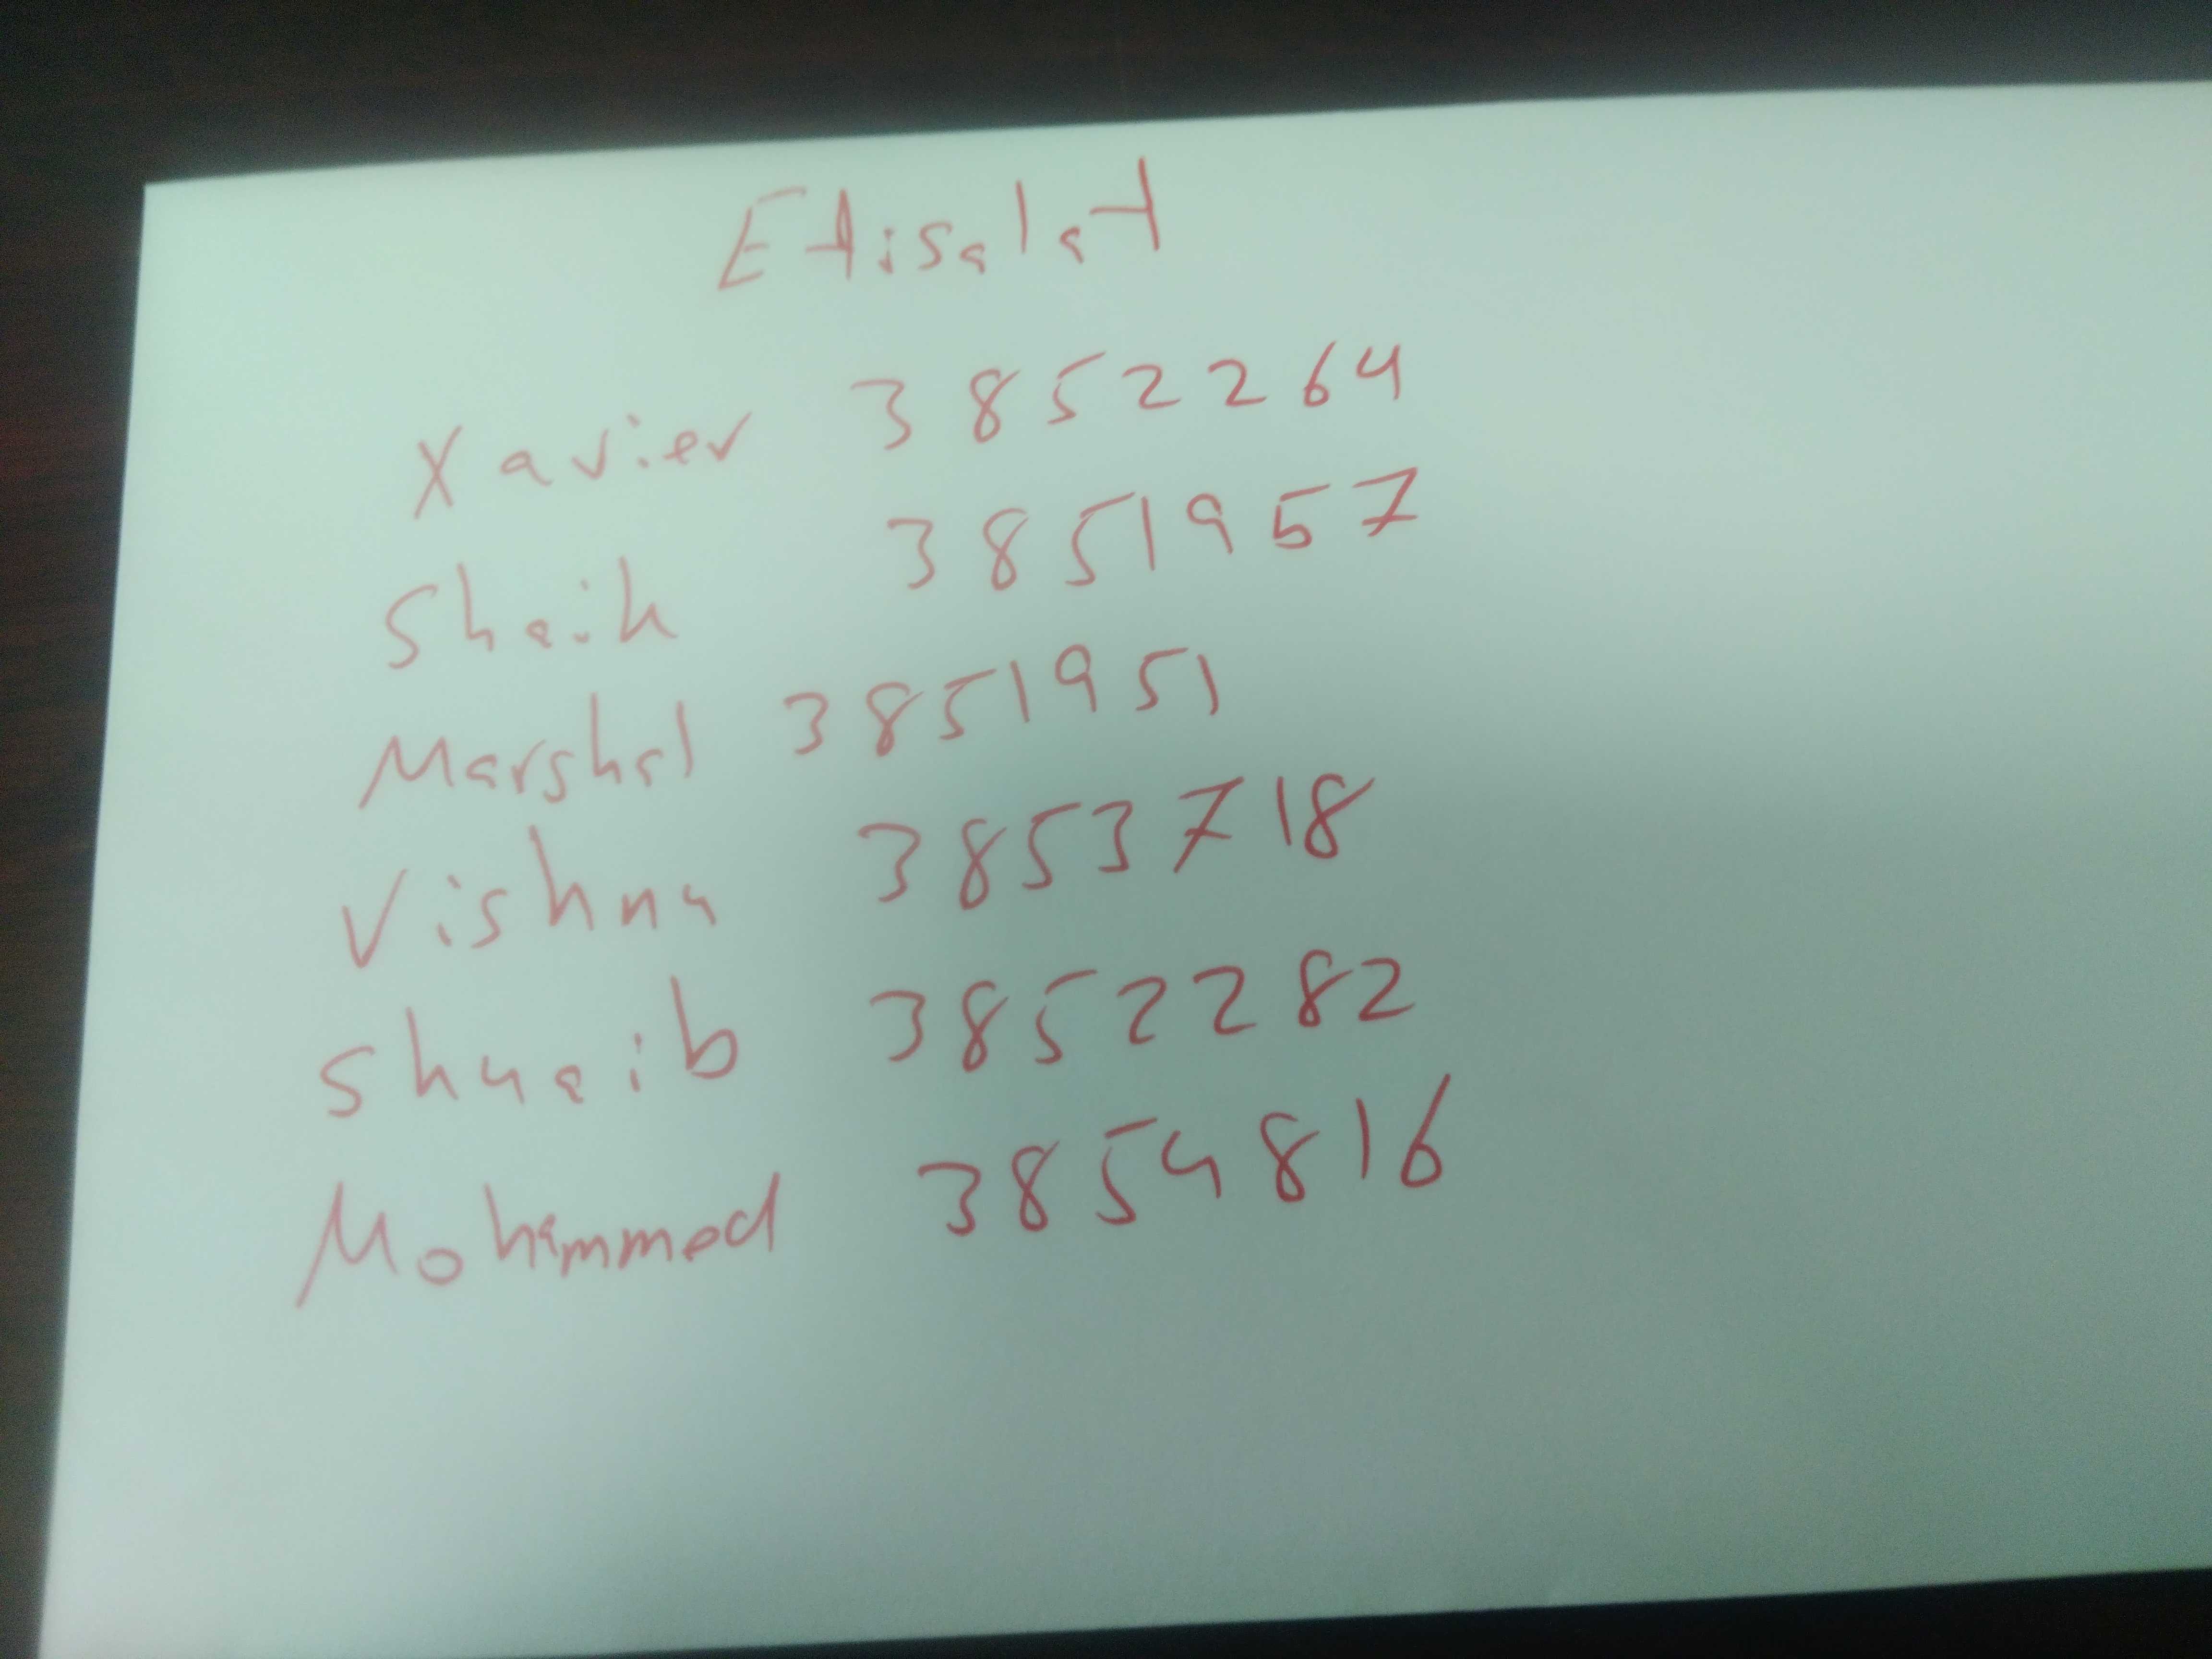 Etisalat
Xavier 3852264
Shaik 3851957
Marshal 3851951
Vishnu 3853718
Shuaib 3852282
Mohammed 3854816